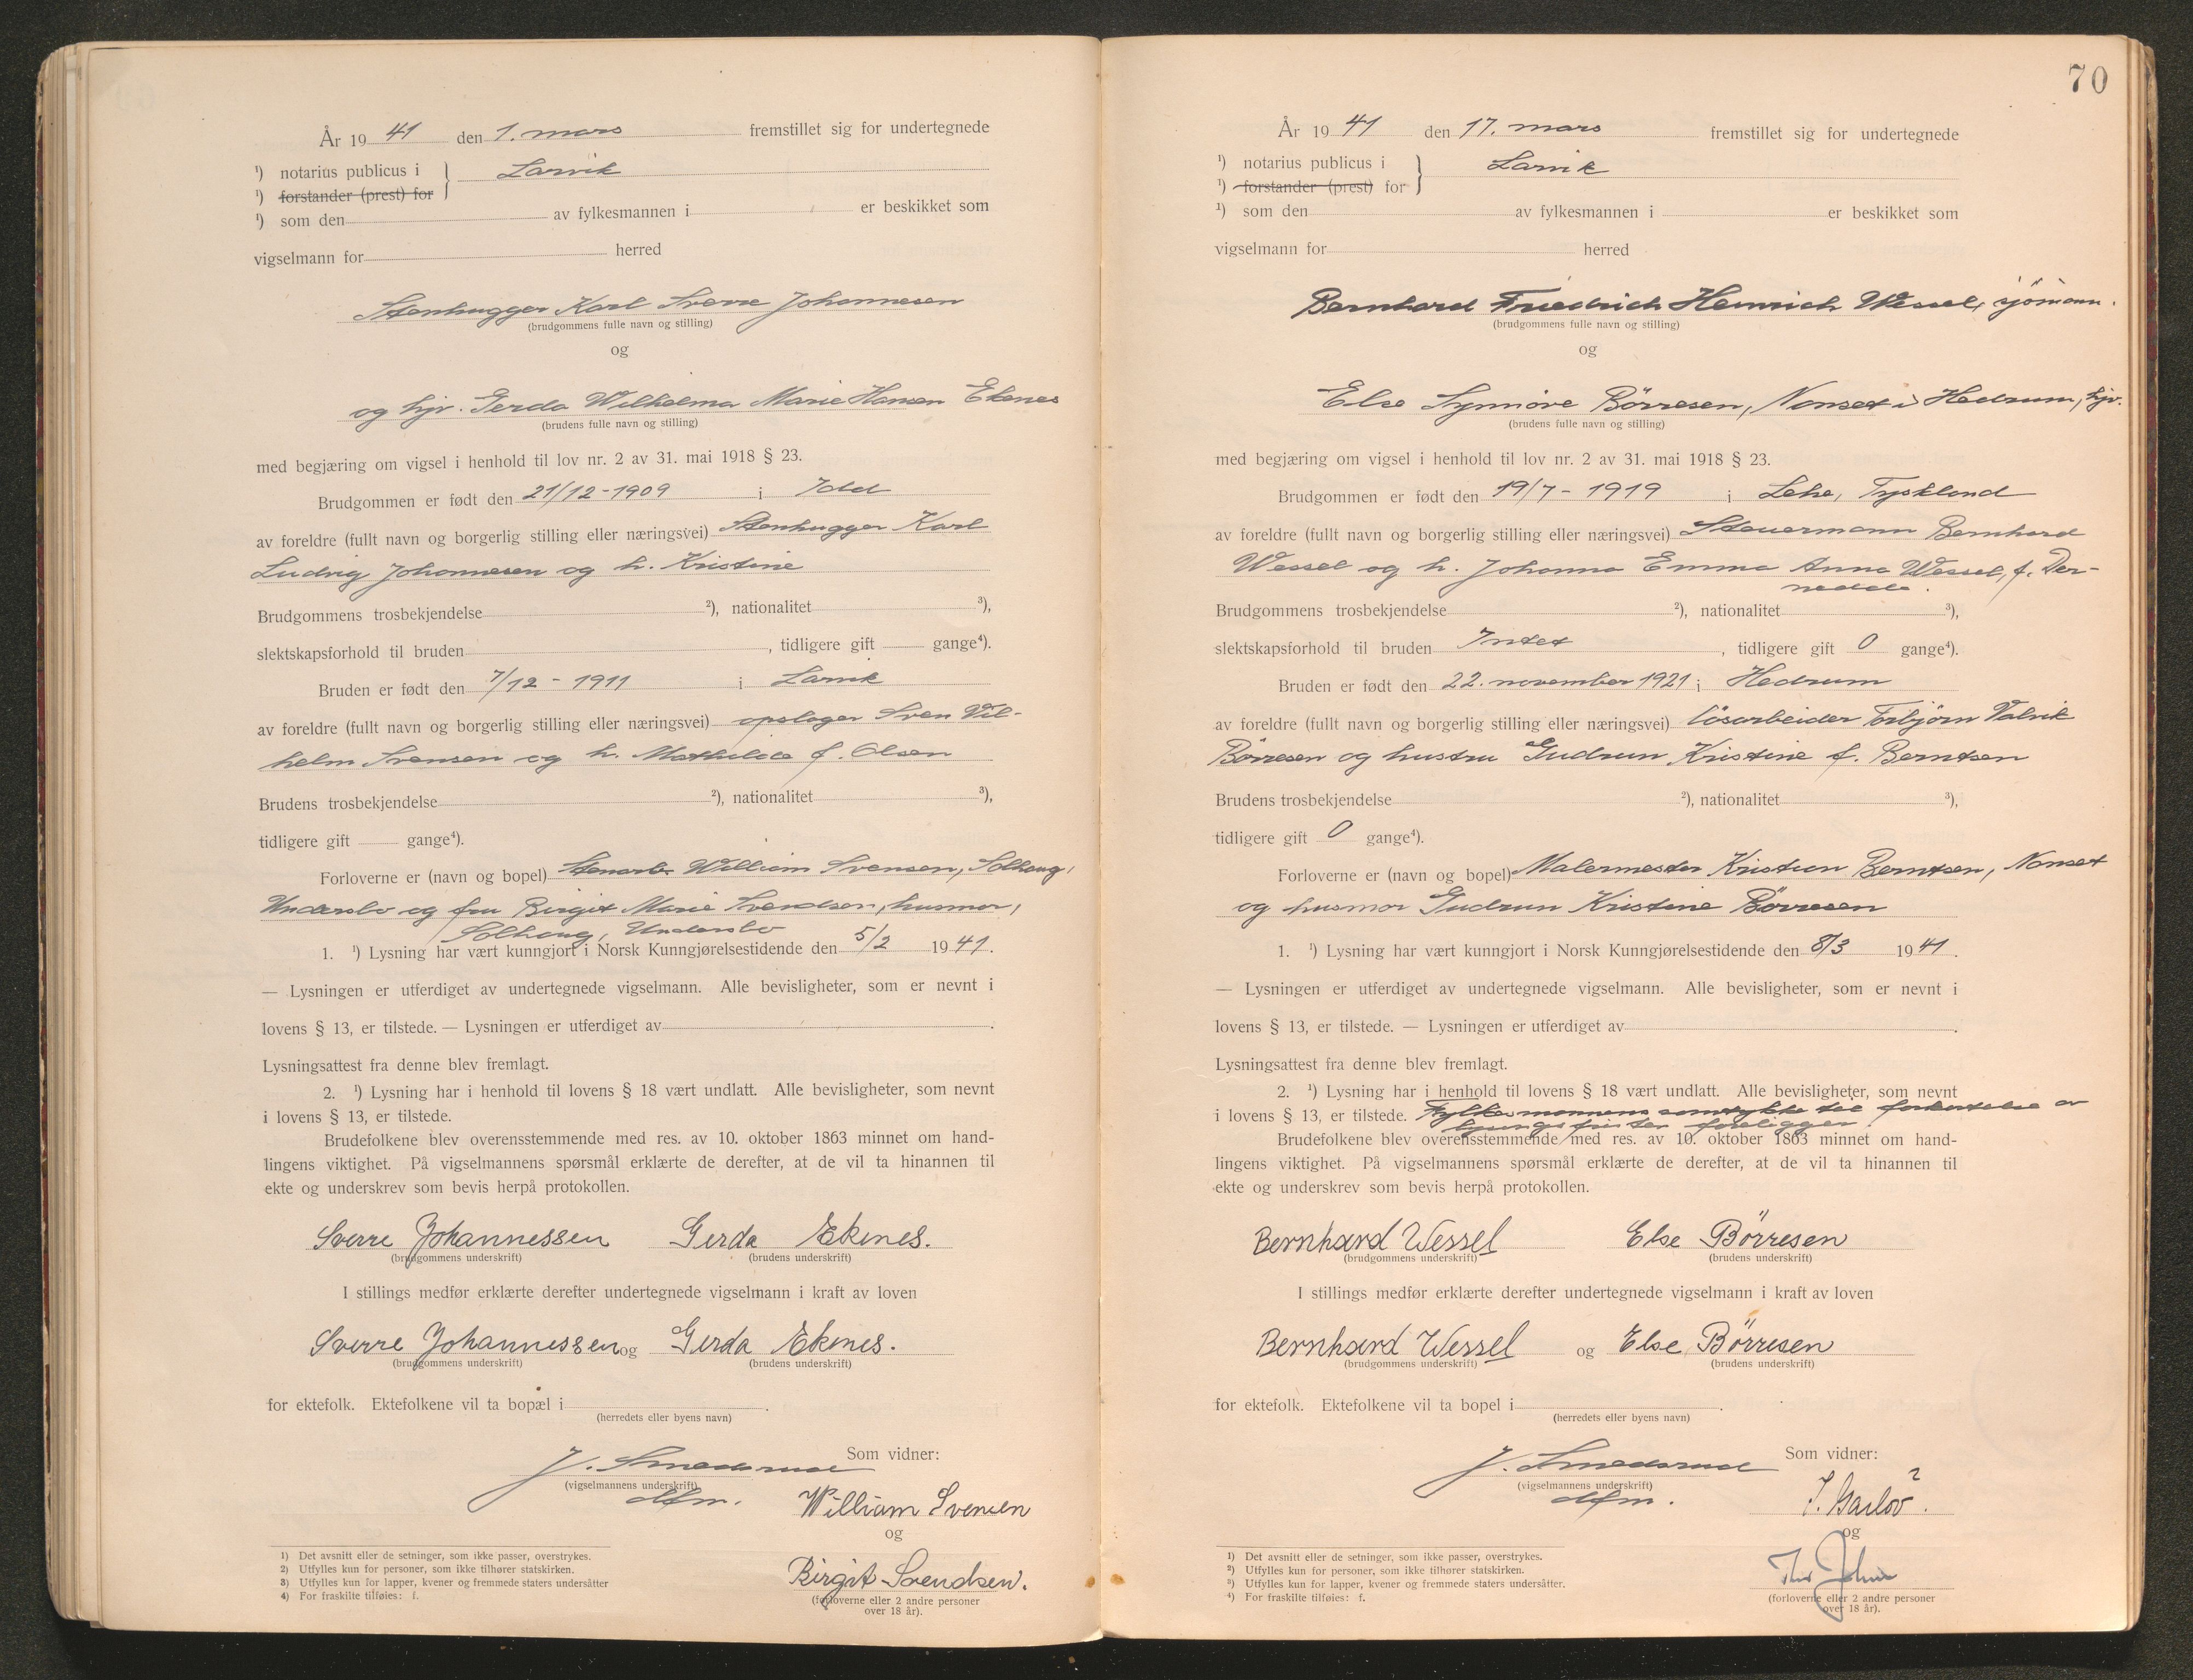 År 1941 den 1. mars fremstillet sig for undertegnede
¹) notarius publicus i } Larvik
¹) forstander (prest) for
¹) som den av fylkesmannen i er beskikket som
vigselmann for herred
Stenhugger Karl Sverre Johannesen
(brudgommens fulle navn og stilling)
og
og hjv. Gerda Wilhelma Marie Hansen Ekenes
(brudens fulle navn og stilling)
med begjæring om vigsel i henhold til lov nr. 2 av 31. mai 1918 § 23.
Brudgommen er født den 21/12-1909 i Idd
av foreldre (fullt navn og borgerlig stilling eller næringsvei) Stenhugger Karl
Ludvig Johannesen og h. Kristine
Brudgommens trosbekjendelse ²), nationalitet ³),
slektskapsforhold til bruden , tidligere gift gange⁴).
Bruden er født den 7/12-1911 i Larvik
av foreldre (fullt navn og borgerlig stilling eller næringsvei) opslager Sven Vil-
helm Svensen og h. Mathilde f. Olsen
Brudens trosbekjendelse ²), nationalitet ³),
tidligere gift gange⁴).
Forloverne er (navn og bopel) Stenarb. William Svensen, Solhaug,
Undersbo og fru Birgit Marie Svendsen, husmor,
Solhaug, Undersbo
1. ¹) Lysning har vært kunngjort i Norsk Kunngjørelsestidende den 5/2 1941.
— Lysningen er utferdiget av undertegnede vigselmann. Alle bevisligheter, som er nevnt i
lovens § 13, er tilstede. — Lysningen er utferdiget av .
Lysningsattest fra denne blev fremlagt.
2. ¹) Lysning har i henhold til lovens § 18 vært undlatt. Alle bevisligheter, som nevnt
i lovens § 13, er tilstede.
Brudefolkene blev overensstemmende med res. av 10. oktober 1863 minnet om hand-
lingens viktighet. På vigselmannens spørsmål erklærte de derefter, at de vil ta hinannen til
ekte og underskrev som bevis herpå protokollen.
Sverre Johannessen Gerda Ekenes.
(brudgommens underskrift) (brudens underskrift)
I stillings medfør erklærte derefter undertegnede vigselmann i kraft av loven
Sverre Johannessen og Gerda Ekenes.
(brudgommens underskrift) (brudens underskrift)
for ektefolk. Ektefolkene vil ta bopæl i .
(herredets eller byens navn)
Som vidner:
J. Smedsrud
(vigselmannens underskrift)
dfm.
William Svensen
og
Birgit Svendsen.
(forloverne eller 2 andre personer
over 18 år).
1) Det avsnitt eller de setninger, som ikke passer, overstrykes.
2) Utfylles kun for personer, som ikke tilhører statskirken.
3) Utfylles kun for lapper, kvener og fremmede staters undersåtter
4) For fraskilte tilføies: f.
70
År 1941 den 17. mars fremstillet sig for undertegnede
¹) notarius publicus i } Larvik
¹) forstander (prest) for
¹) som den av fylkesmannen i er beskikket som
vigselmann for herred
Bernhard Friedrich Heinrich Wessel, sjömann.
(brudgommens fulle navn og stilling)
og
Else Synnöve Börresen, Nanset i Hedrum, hjv.
(brudens fulle navn og stilling)
med begjæring om vigsel i henhold til lov nr. 2 av 31. mai 1918 § 23.
Brudgommen er født den 19/7-1919 i Lehe, Tyskland
av foreldre (fullt navn og borgerlig stilling eller næringsvei) Steuermann Bernhard
Wessel og h. Johanna Emma Anna Wessel, f. Der-
nedde.
Brudgommens trosbekjendelse ²), nationalitet ³),
slektskapsforhold til bruden Intet , tidligere gift 0 gange⁴).
Bruden er født den 22. november 1921 i Hedrum
av foreldre (fullt navn og borgerlig stilling eller næringsvei) lösarbeider Torbjörn Valvik
Börresen og hustru Gudrun Kristine f. Berntsen
Brudens trosbekjendelse ²), nationalitet ³),
tidligere gift 0 gange⁴).
Forloverne er (navn og bopel) Malermester Kristian Berntsen, Nanset
og husmor Gudrun Kristine Börresen
1. ¹) Lysning har vært kunngjort i Norsk Kunngjørelsestidende den 8/3 1941.
— Lysningen er utferdiget av undertegnede vigselmann. Alle bevisligheter, som er nevnt i
lovens § 13, er tilstede. — Lysningen er utferdiget av .
Lysningsattest fra denne blev fremlagt.
2. ¹) Lysning har i henhold til lovens § 18 vært undlatt. Alle bevisligheter, som nevnt
i lovens § 13, er tilstede. Fylkesmannens samtykke til forkortelse av
lysningsfrister foreligger.
Brudefolkene blev overensstemmende med res. av 10. oktober 1863 minnet om hand-
lingens viktighet. På vigselmannens spørsmål erklærte de derefter, at de vil ta hinannen til
ekte og underskrev som bevis herpå protokollen.
Bernhard Wessel Else Börresen
(brudgommens underskrift) (brudens underskrift)
I stillings medfør erklærte derefter undertegnede vigselmann i kraft av loven
Bernhard Wessel og Else Börresen
(brudgommens underskrift) (brudens underskrift)
for ektefolk. Ektefolkene vil ta bopel i .
(herredets eller byens navn)
Som vidner:
J. Smedsrud
(vigselmannens underskrift)
dfm.
og
(forloverne eller 2 andre personer
over 18 år).
1) Det avsnitt eller de setninger, som ikke passer, overstrykes.
2) Utfylles kun for personer, som ikke tilhører statskirken.
3) Utfylles kun for lapper, kvener og fremmede staters undersåtter.
4) For fraskilte tilføies: f.